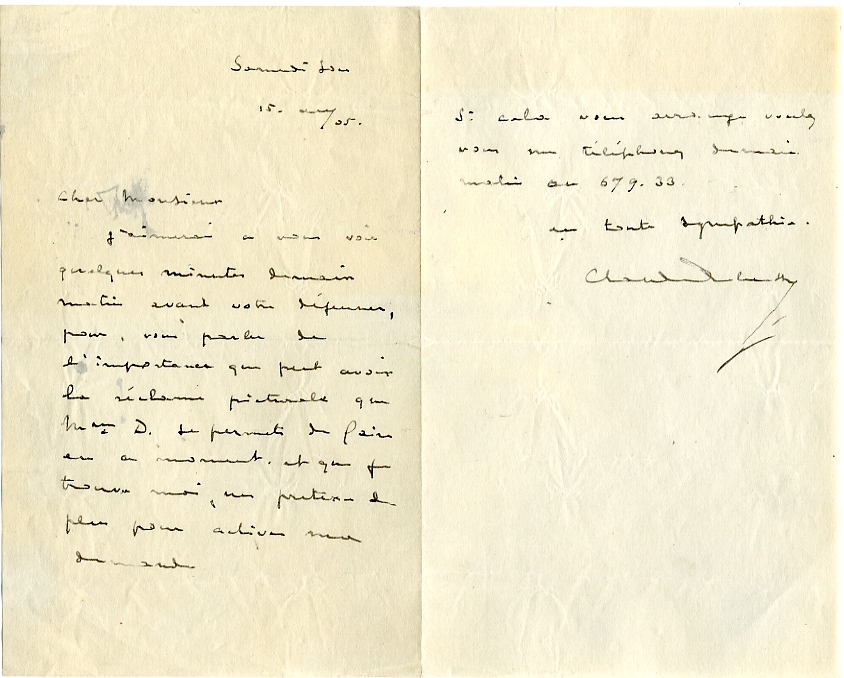 Samedi soir
15. avr/05.
Cher Monsieur
J'aimerai a vous voir
quelques minutes demain
matin avant votre déjeuner,
pour, vous parler de
l'importance que peut avoir
la réclame picturale que
Mme D. se permets de faire
en ce moment. et que je
trouve moi, un pretexte de
plus pour activer ma
demande
Si cela vous arrange voulez
vous me téléphoner demain
matin au 679.33.
en toute sympathie.
Claude Debussy